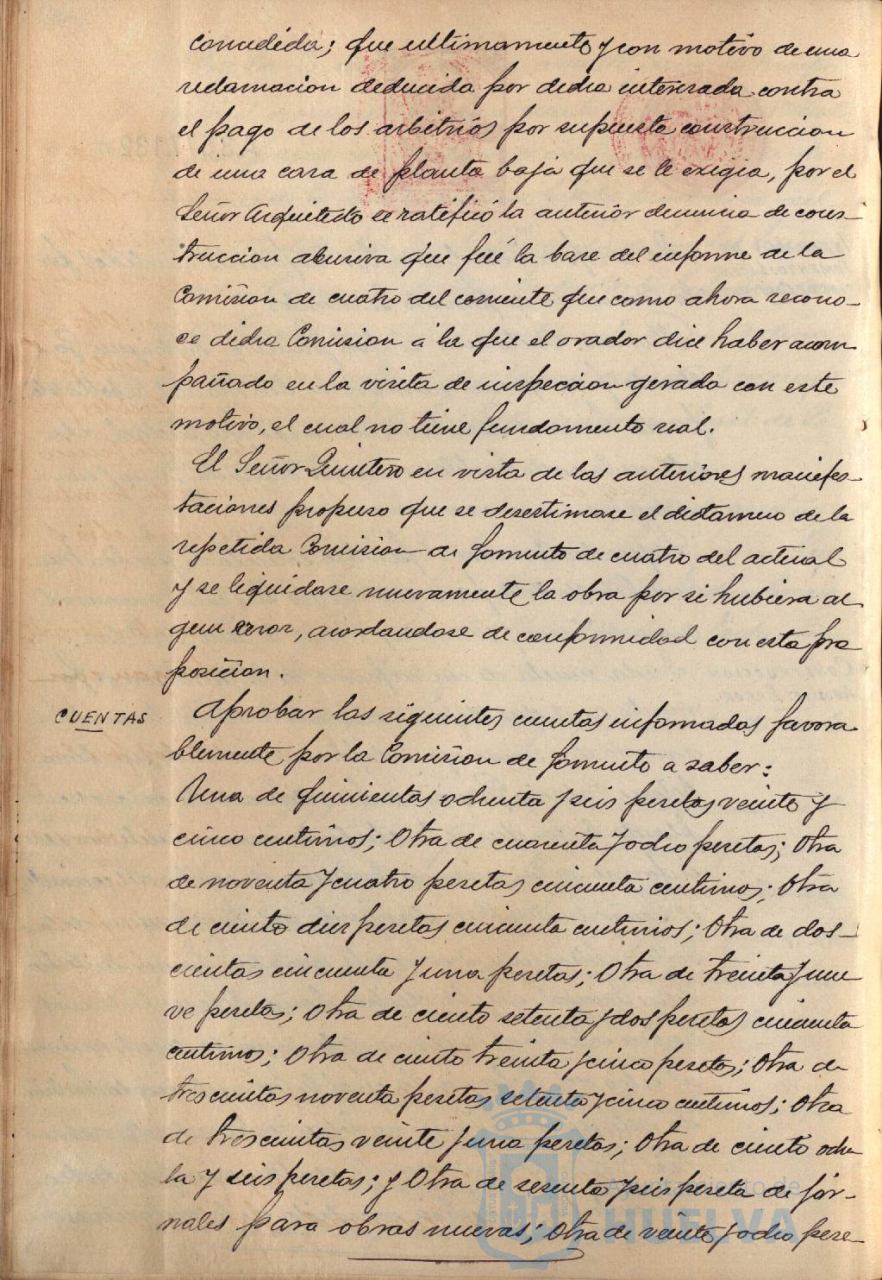 concedida; que ultimamente y con motivo de una
reclamacion deducida por dicha interesada contra
el pago de los arbitrios por supuesta construccion
de una casa de planta baja que se le exigia, por el
Señor Arquitecto se ratificó la anterior denuncia de cons-
truccion abusiva que fué la base del informe de la
Comision de cuatro del corriente que como ahora recono-
ce dicha Comision á la que el orador dice haber acom
pañado en la visita de inspeccion girada con este
motivo, el cual no tiene fundamento real.
El Señor Quintero en vista de las anteriores manifes-
taciones propuso que se desestimase el dictamen de la
repetida Comision de fomento de cuatro del actual
y se liquidase nuevamente la obra por si hubiera al
gun error, acordandose de conformidad con esta pro
posicion.
CUENTAS
Aprobar las siguientes cuentas informadas favora
blemente por la Comision de fomento a saber:
Una de quinientas ochenta y seis pesetas veinte y
cinco centimos; Otra de cuarenta y ocho pesetas; Otra
de noventa y cuatro pesetas cincuenta centimos; Otra
de ciento diez pesetas cincuenta centimos; Otra de dos-
cientas cincuenta y una pesetas; Otra de treinta y nue
ve pesetas; Otra de ciento setenta y dos pesetas cincuenta
centimos; Otra de ciento treinta y cinco pesetas; Otra de
trescientas noventa pesetas setenta y cinco centimos; Otra
de trescientas veinte y una pesetas; Otra de ciento oche
ta y seis pesetas; y Otra de sesenta y seis peseta de jor-
nales para obras nuevas; Otra de veinte y ocho pese-
HUELVA